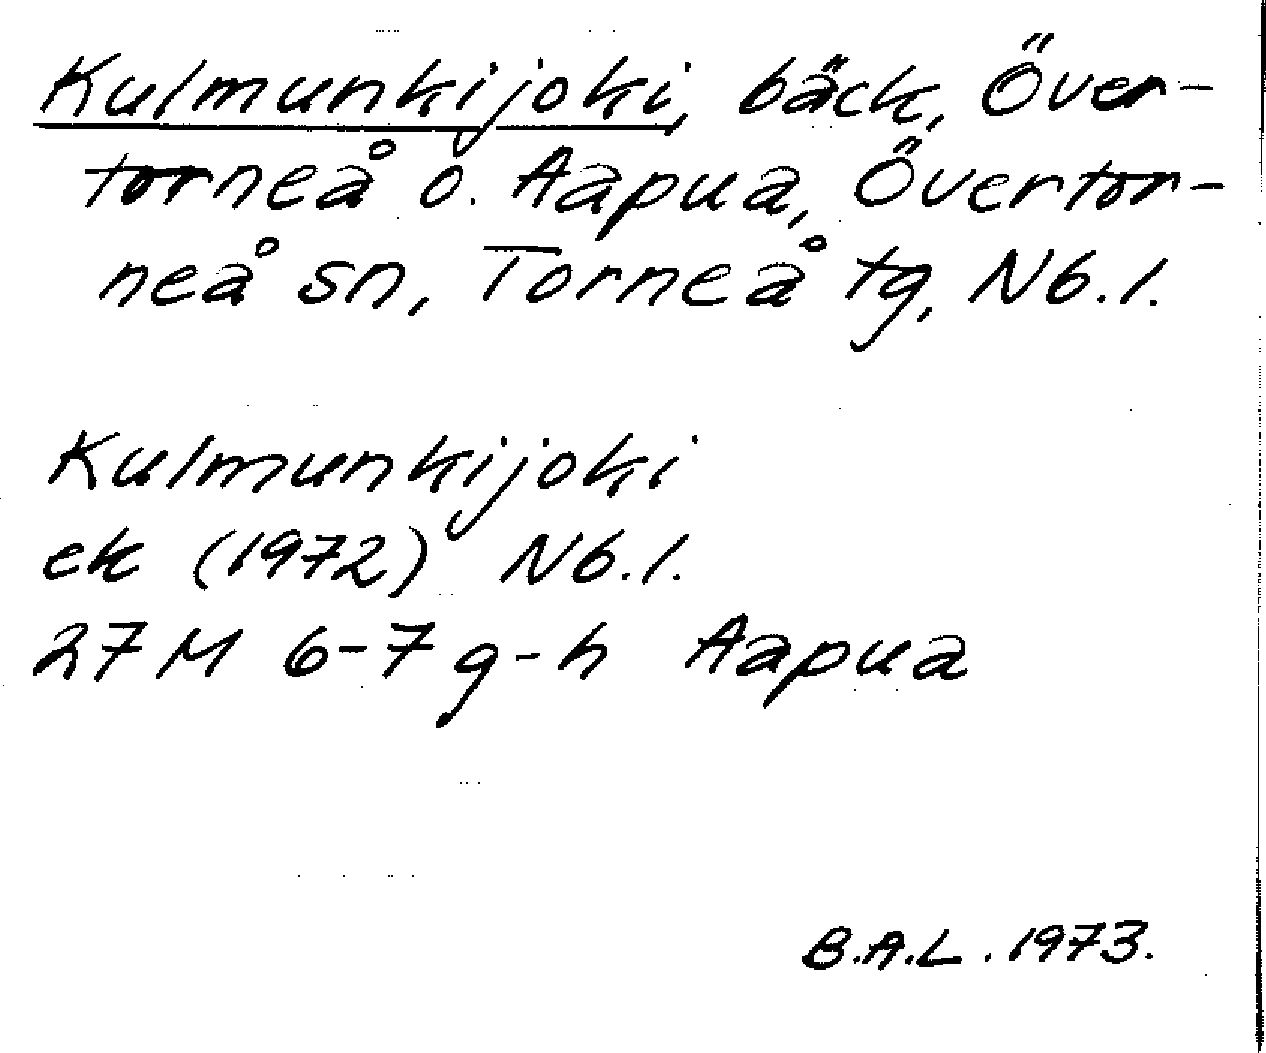 Kulmunkijoki, bäck, Över-
torneå o. Aapua, Övertor-
neå sn, Torneå tg, Nb.l.
Kulmunkijoki
ek (1972) Nb.l.
27 M 6-7 g-h Aapua
B.A.L. 1973.